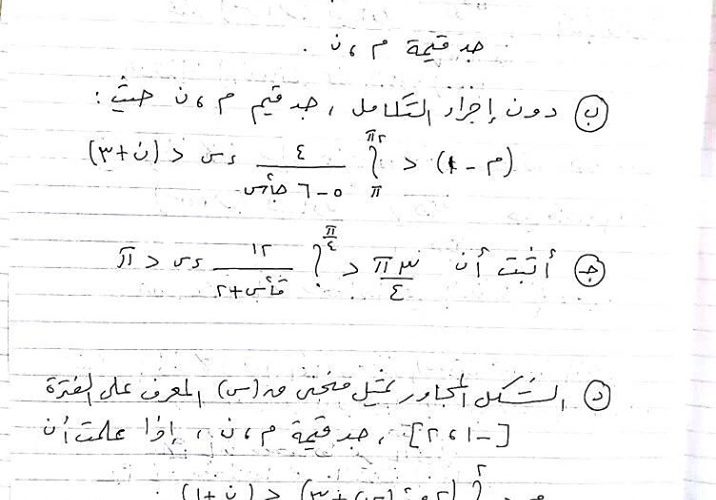 جد قيمة م ، ن .
ب دون إجراء التكامل ، جد قيم م ، ن حيث :
(م - ١) > ∫ ٤ / ٥ - ٦ جا٢س ءس > (ن + ٣)
ج أثبت أن ٣π / ٤ > ∫ ١٢ / قا٢س + ٢ ءس > π
د الشكل المجاور يمثل منحنى ق(س) المعرف على الفترة
[-١ ، ٢] ، جد قيمة م ، ن ، إذا علمت أن
(ن + ١)